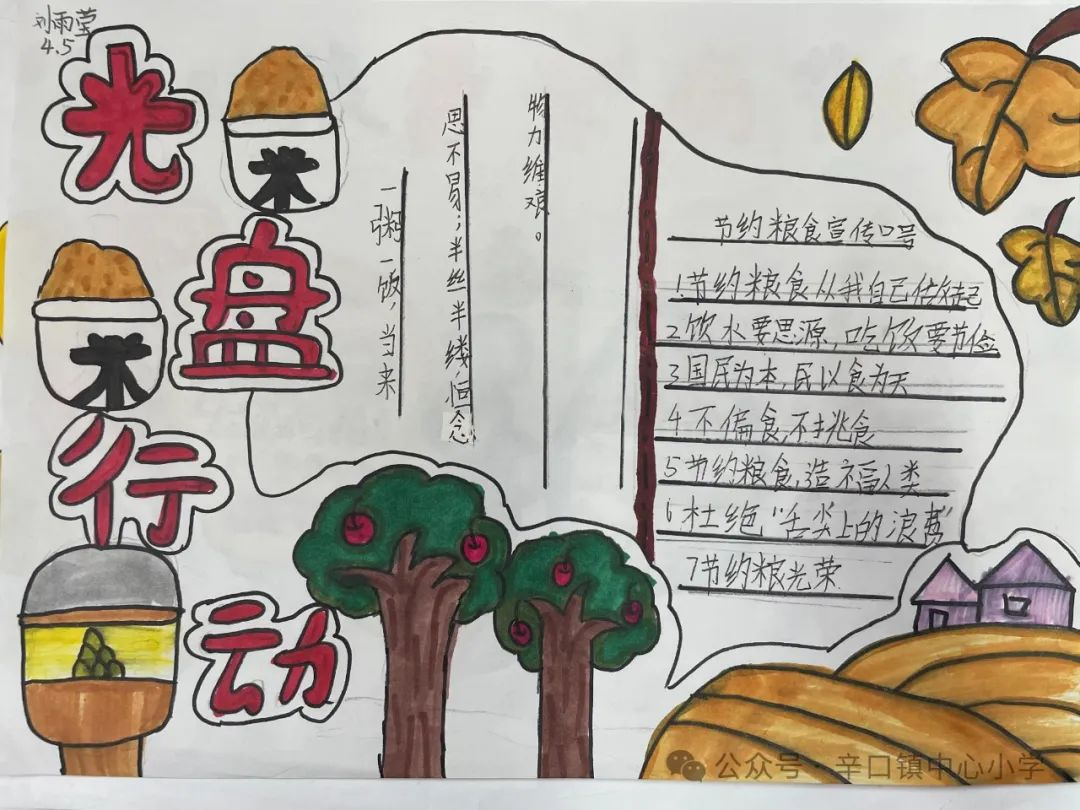 刘雨莹
4.5
光
米
盘
米
行
动
一粥一饭，当来
思不易；半丝半缕，恒念
物力维艰。
节约粮食宣传口号
1.节约粮食从我自己做起
2饮水要思源，吃饭要节俭
3国民为本，民以食为天
4不偏食，不挑食
5节约粮食，造福人类
6杜绝“舌尖上的浪费”
7节约粮光荣
公众号·辛口镇中心小学